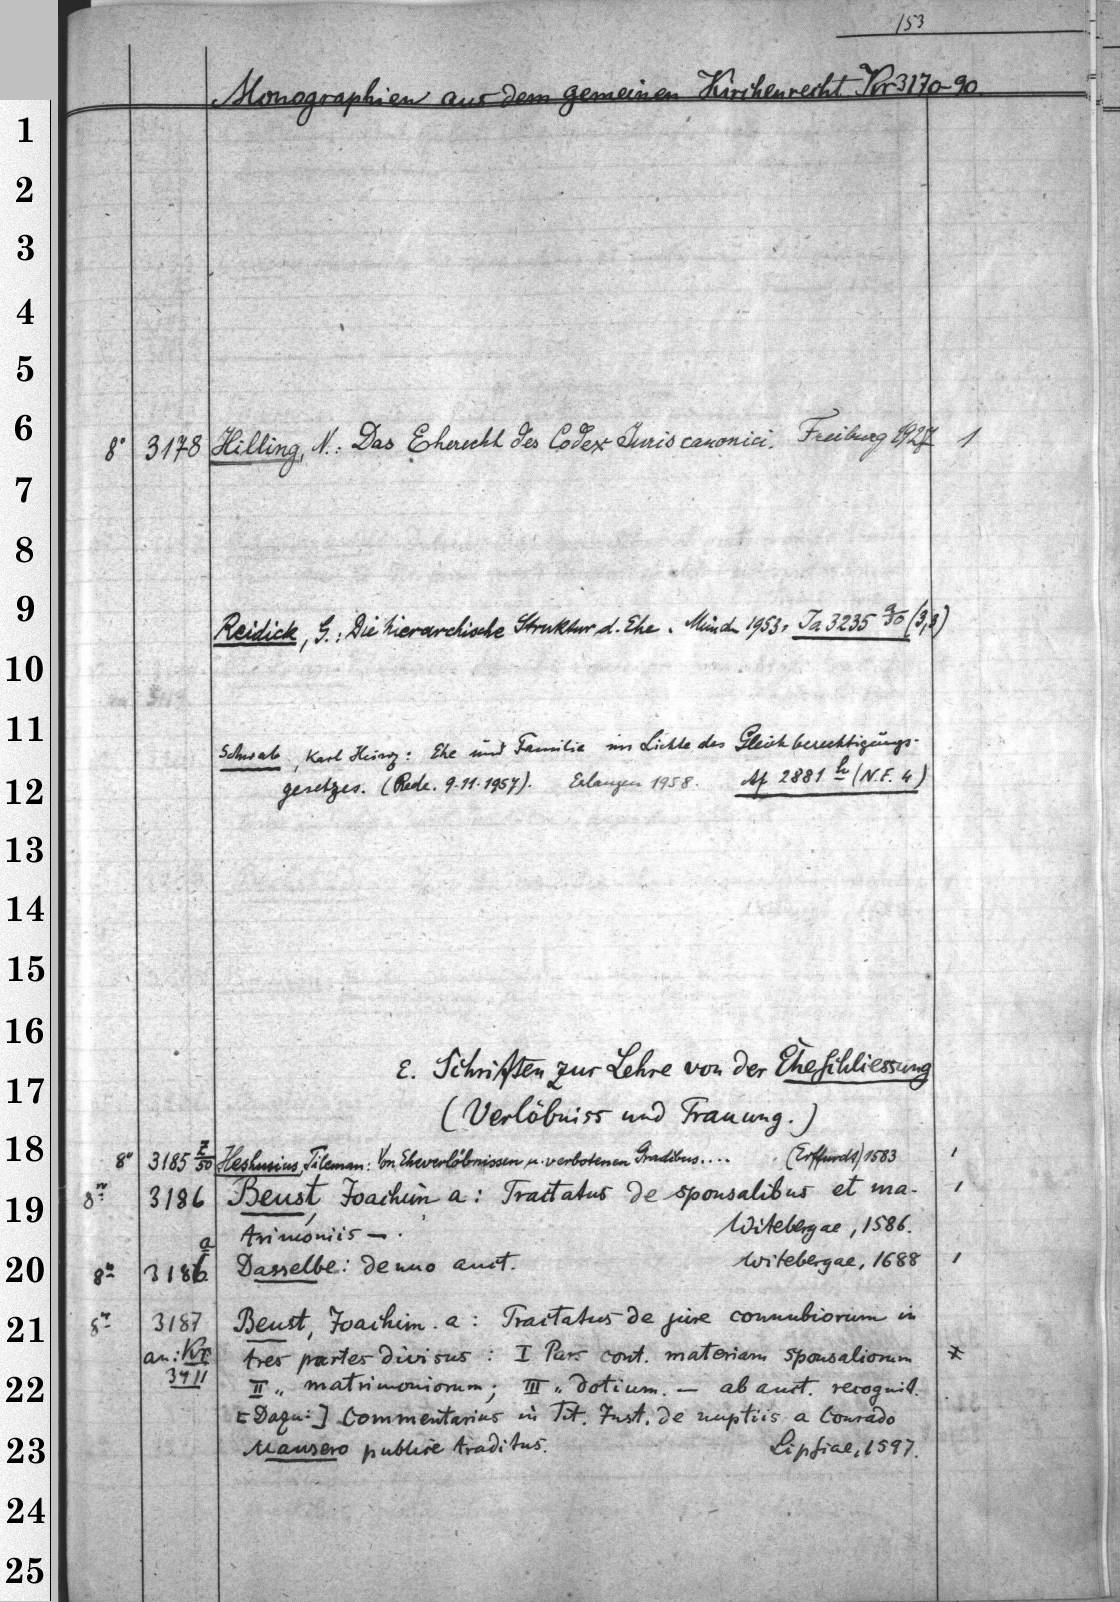 153
Monographien aus dem gemeinen Kirchenrecht Kr 3170-90
1
2
3
4
5
6
8° 3178 Hilling, N.: Das Eherecht des Codex Juris canonici. Freiburg 1927 1
7
8
9
Reidick, G.: Die hierarchische Struktur d. Ehe. Münch 1953. Ja 3235 g/50 (3,3)
10
11
Schwab, Karl Heinz: Ehe und Familie im Lichte des Gleichberechtigungs-
12
gesetzes. (Rede. 9.11.1957). Erlangen 1958. Af 2881 h (N.F. 4)
13
14
15
16
E. Schriften zur Lehre von der Eheschliessung
17
(Verlöbniss und Trauung.)
18
8° 3185 z/50 Heshusius, Tileman: Von Eheverlöbnissen u. verbotenen Gradibus.... (Erffurdt) 1583 1
19
8° 3186 Beust, Joachim a: Tractatus de sponsalibus et ma-
trimoniis —. Witebergae, 1586. 1
20
8° 3186 a Dasselbe: denuo auct. Witebergae, 1688 1
21
8° 3187 Beust, Joachim. a: Tractatus de jure connubiorum in
an: Kr tres partes divisus: I Pars cont. materiam sponsaliorum *
3411
22
II „ matrimoniorum; III „ dotium. — ab auct. recognit.
[Dazu:] Commentarius in Tit. Inst. de nuptiis a Conrado
23
Mausero publice traditus. Lipsiae, 1597.
24
25